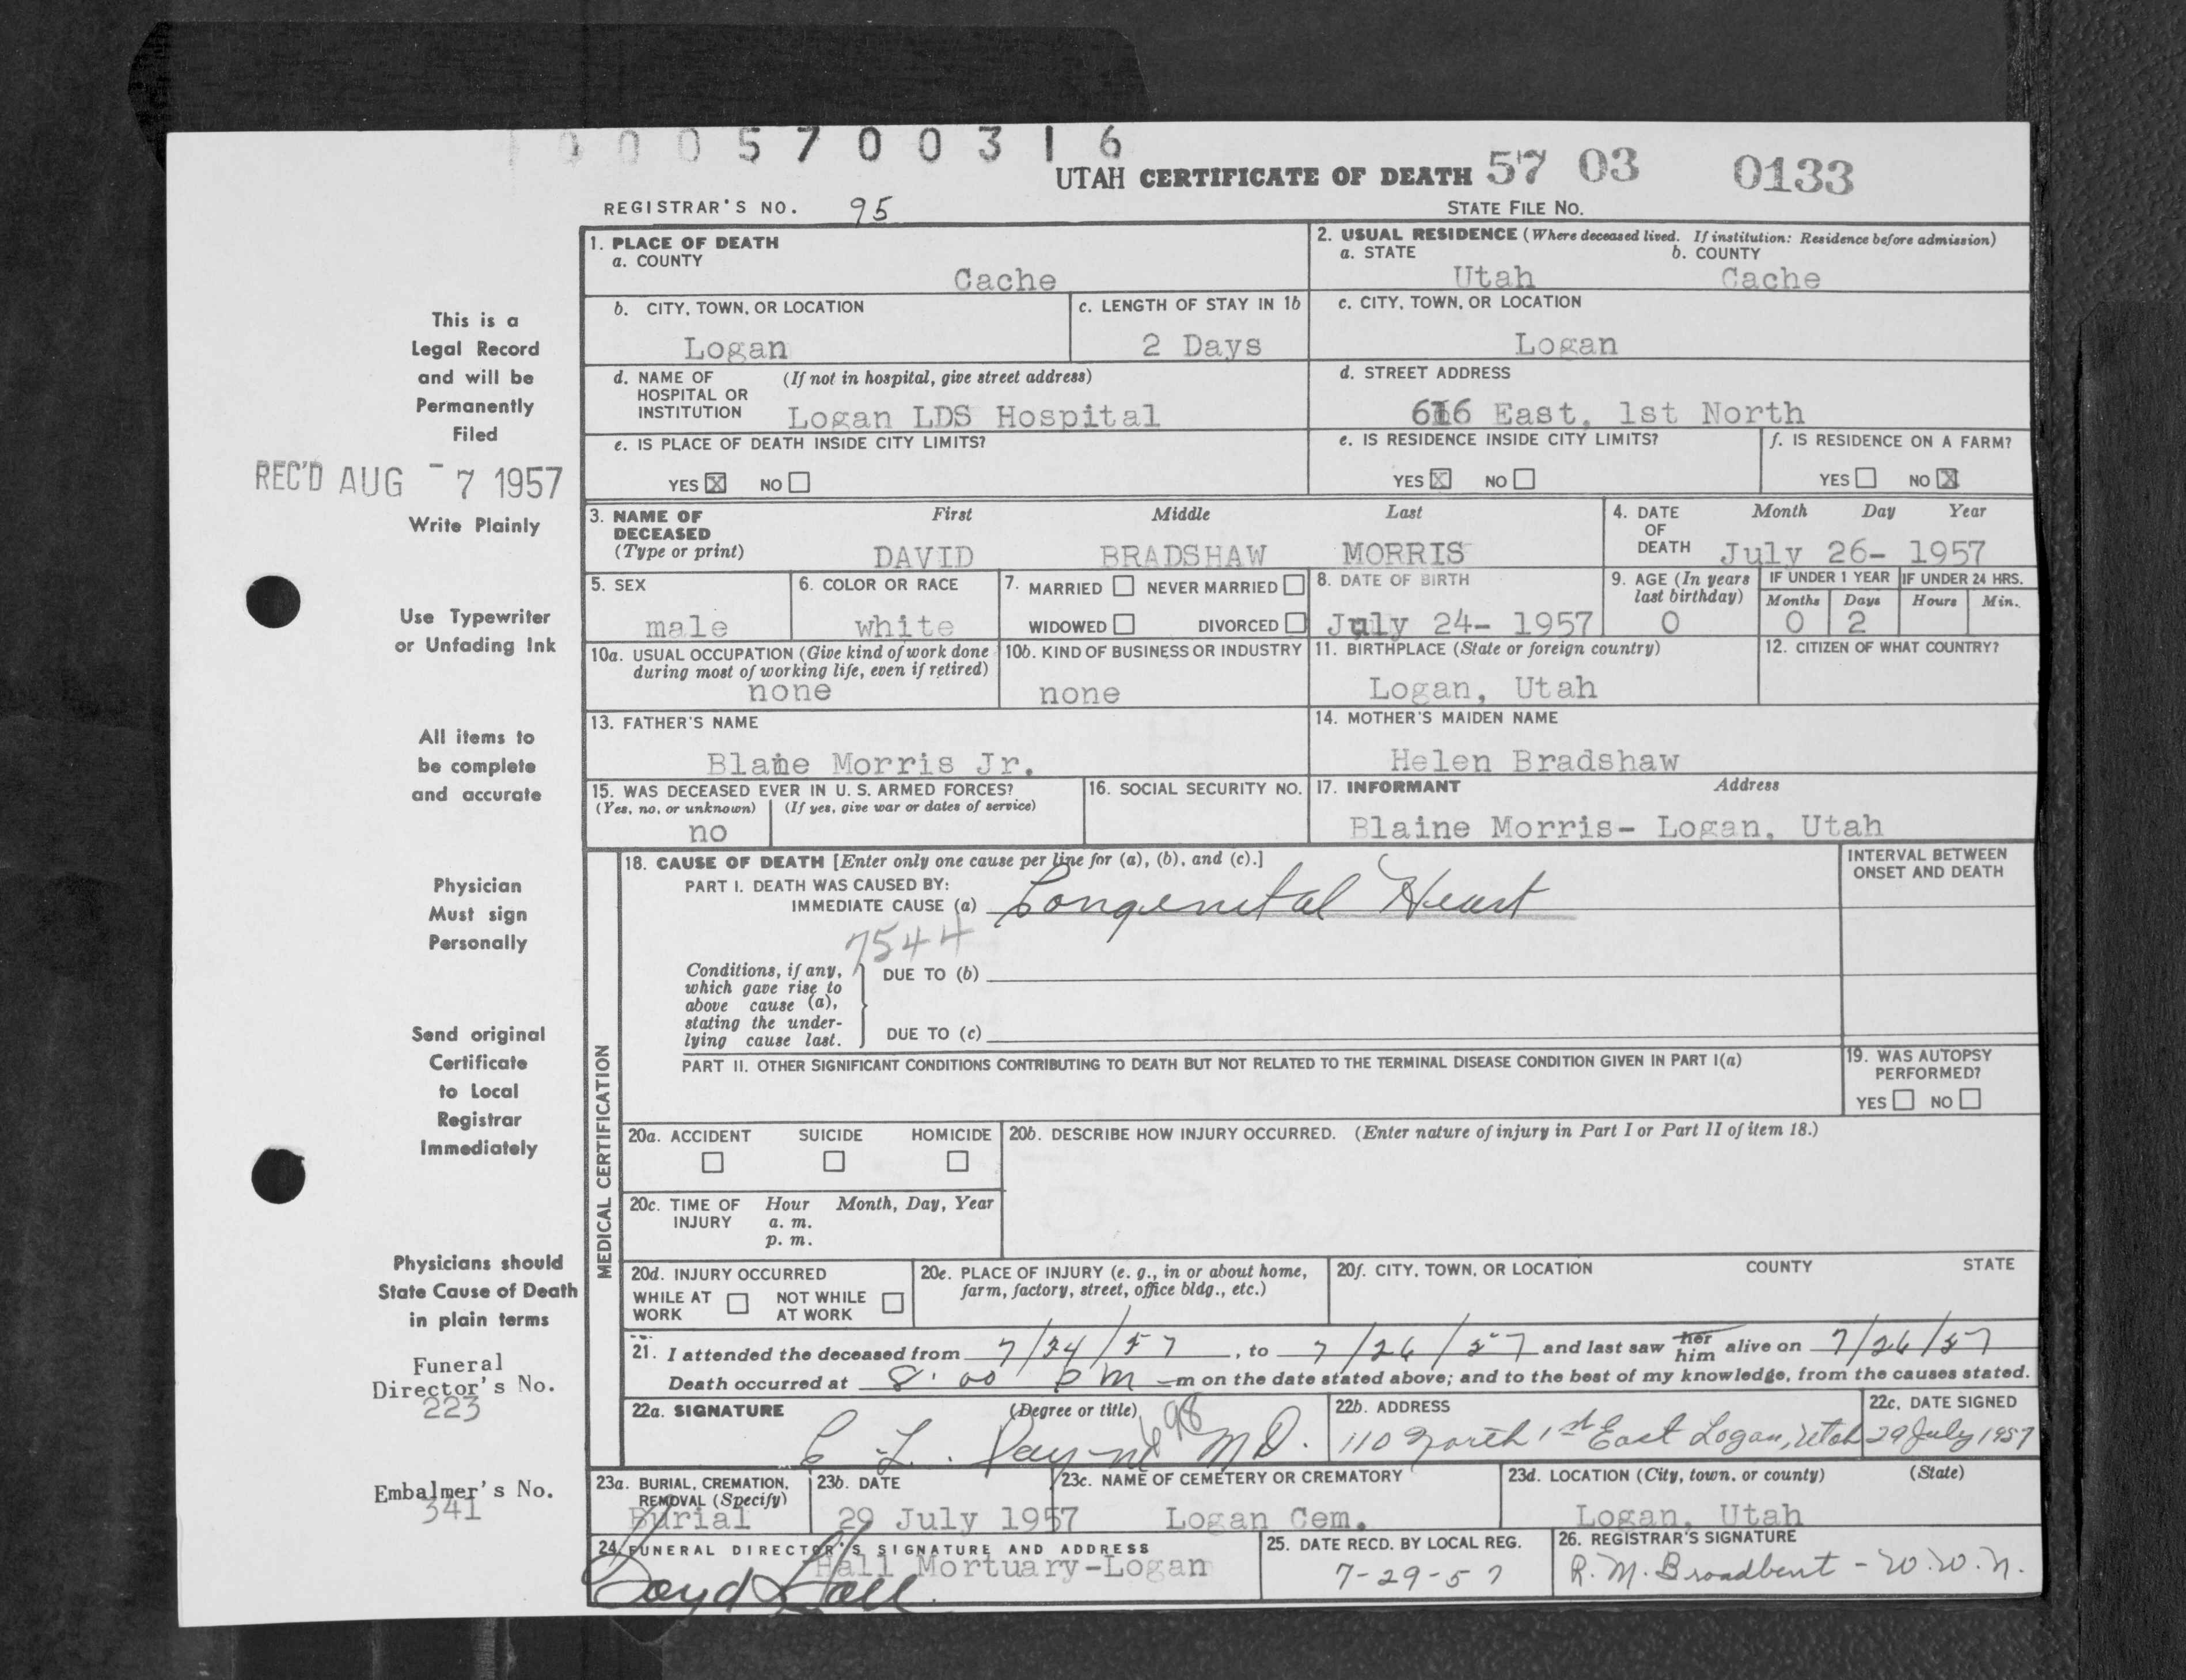 1 0 0 0 5 7 0 0 3 1 6
UTAH CERTIFICATE OF DEATH 57 03 0133
REGISTRAR'S NO. 95
STATE FILE NO.
1. PLACE OF DEATH
a. COUNTY
Cache
2. USUAL RESIDENCE (Where deceased lived. If institution: Residence before admission)
a. STATE b. COUNTY
Utah Cache
b. CITY, TOWN, OR LOCATION
Logan
c. LENGTH OF STAY IN 1b
2 Days
c. CITY, TOWN, OR LOCATION
Logan
d. NAME OF (If not in hospital, give street address)
HOSPITAL OR
INSTITUTION Logan LDS Hospital
d. STREET ADDRESS
616 East, 1st North
e. IS PLACE OF DEATH INSIDE CITY LIMITS?
YES X NO
e. IS RESIDENCE INSIDE CITY LIMITS?
YES X NO
f. IS RESIDENCE ON A FARM?
YES NO X
3. NAME OF First Middle Last
DECEASED
(Type or print) DAVID BRADSHAW MORRIS
4. DATE Month Day Year
OF
DEATH July 26- 1957
5. SEX
male
6. COLOR OR RACE
white
7. MARRIED NEVER MARRIED
WIDOWED DIVORCED
8. DATE OF BIRTH
July 24- 1957
9. AGE (In years
last birthday)
0
IF UNDER 1 YEAR
Months Days
0 2
IF UNDER 24 HRS.
Hours Min.
10a. USUAL OCCUPATION (Give kind of work done
during most of working life, even if retired)
none
10b. KIND OF BUSINESS OR INDUSTRY
none
11. BIRTHPLACE (State or foreign country)
Logan, Utah
12. CITIZEN OF WHAT COUNTRY?
13. FATHER'S NAME
Blaine Morris Jr.
14. MOTHER'S MAIDEN NAME
Helen Bradshaw
15. WAS DECEASED EVER IN U. S. ARMED FORCES?
(Yes, no, or unknown) (If yes, give war or dates of service)
no
16. SOCIAL SECURITY NO.
17. INFORMANT Address
Blaine Morris- Logan, Utah
MEDICAL CERTIFICATION
18. CAUSE OF DEATH [Enter only one cause per line for (a), (b), and (c).]
PART I. DEATH WAS CAUSED BY:
IMMEDIATE CAUSE (a) Congenital Heart
INTERVAL BETWEEN
ONSET AND DEATH
7544
Conditions, if any,
which gave rise to
above cause (a),
stating the under-
lying cause last.
DUE TO (b)
DUE TO (c)
PART II. OTHER SIGNIFICANT CONDITIONS CONTRIBUTING TO DEATH BUT NOT RELATED TO THE TERMINAL DISEASE CONDITION GIVEN IN PART I(a)
19. WAS AUTOPSY
PERFORMED?
YES NO
20a. ACCIDENT SUICIDE HOMICIDE
20b. DESCRIBE HOW INJURY OCCURRED. (Enter nature of injury in Part I or Part II of item 18.)
20c. TIME OF Hour Month, Day, Year
INJURY a. m.
p. m.
20d. INJURY OCCURRED
WHILE AT NOT WHILE
WORK AT WORK
20e. PLACE OF INJURY (e. g., in or about home,
farm, factory, street, office bldg., etc.)
20f. CITY, TOWN, OR LOCATION COUNTY STATE
21. I attended the deceased from 7/24/57, to 7/26/57 and last saw her him alive on 7/26/57
Death occurred at 8:00 p m -m on the date stated above; and to the best of my knowledge, from the causes stated.
22a. SIGNATURE (Degree or title) 698
C. L. Payne MD.
22b. ADDRESS
110 North 1st East Logan, Utah
22c. DATE SIGNED
29 July 1957
23a. BURIAL, CREMATION,
REMOVAL (Specify)
Burial
23b. DATE
29 July 1957
23c. NAME OF CEMETERY OR CREMATORY
Logan Cem.
23d. LOCATION (City, town, or county) (State)
Logan, Utah
24. FUNERAL DIRECTOR'S SIGNATURE AND ADDRESS
Hall Mortuary-Logan
Loyd Hall
25. DATE RECD. BY LOCAL REG.
7-29-57
26. REGISTRAR'S SIGNATURE
R. M. Broadbent - W.W.N.
This is a
Legal Record
and will be
Permanently
Filed
REC'D AUG -7 1957
Write Plainly
Use Typewriter
or Unfading Ink
All items to
be complete
and accurate
Physician
Must sign
Personally
Send original
Certificate
to Local
Registrar
Immediately
Physicians should
State Cause of Death
in plain terms
Funeral
Director's No.
223
Embalmer's No.
341